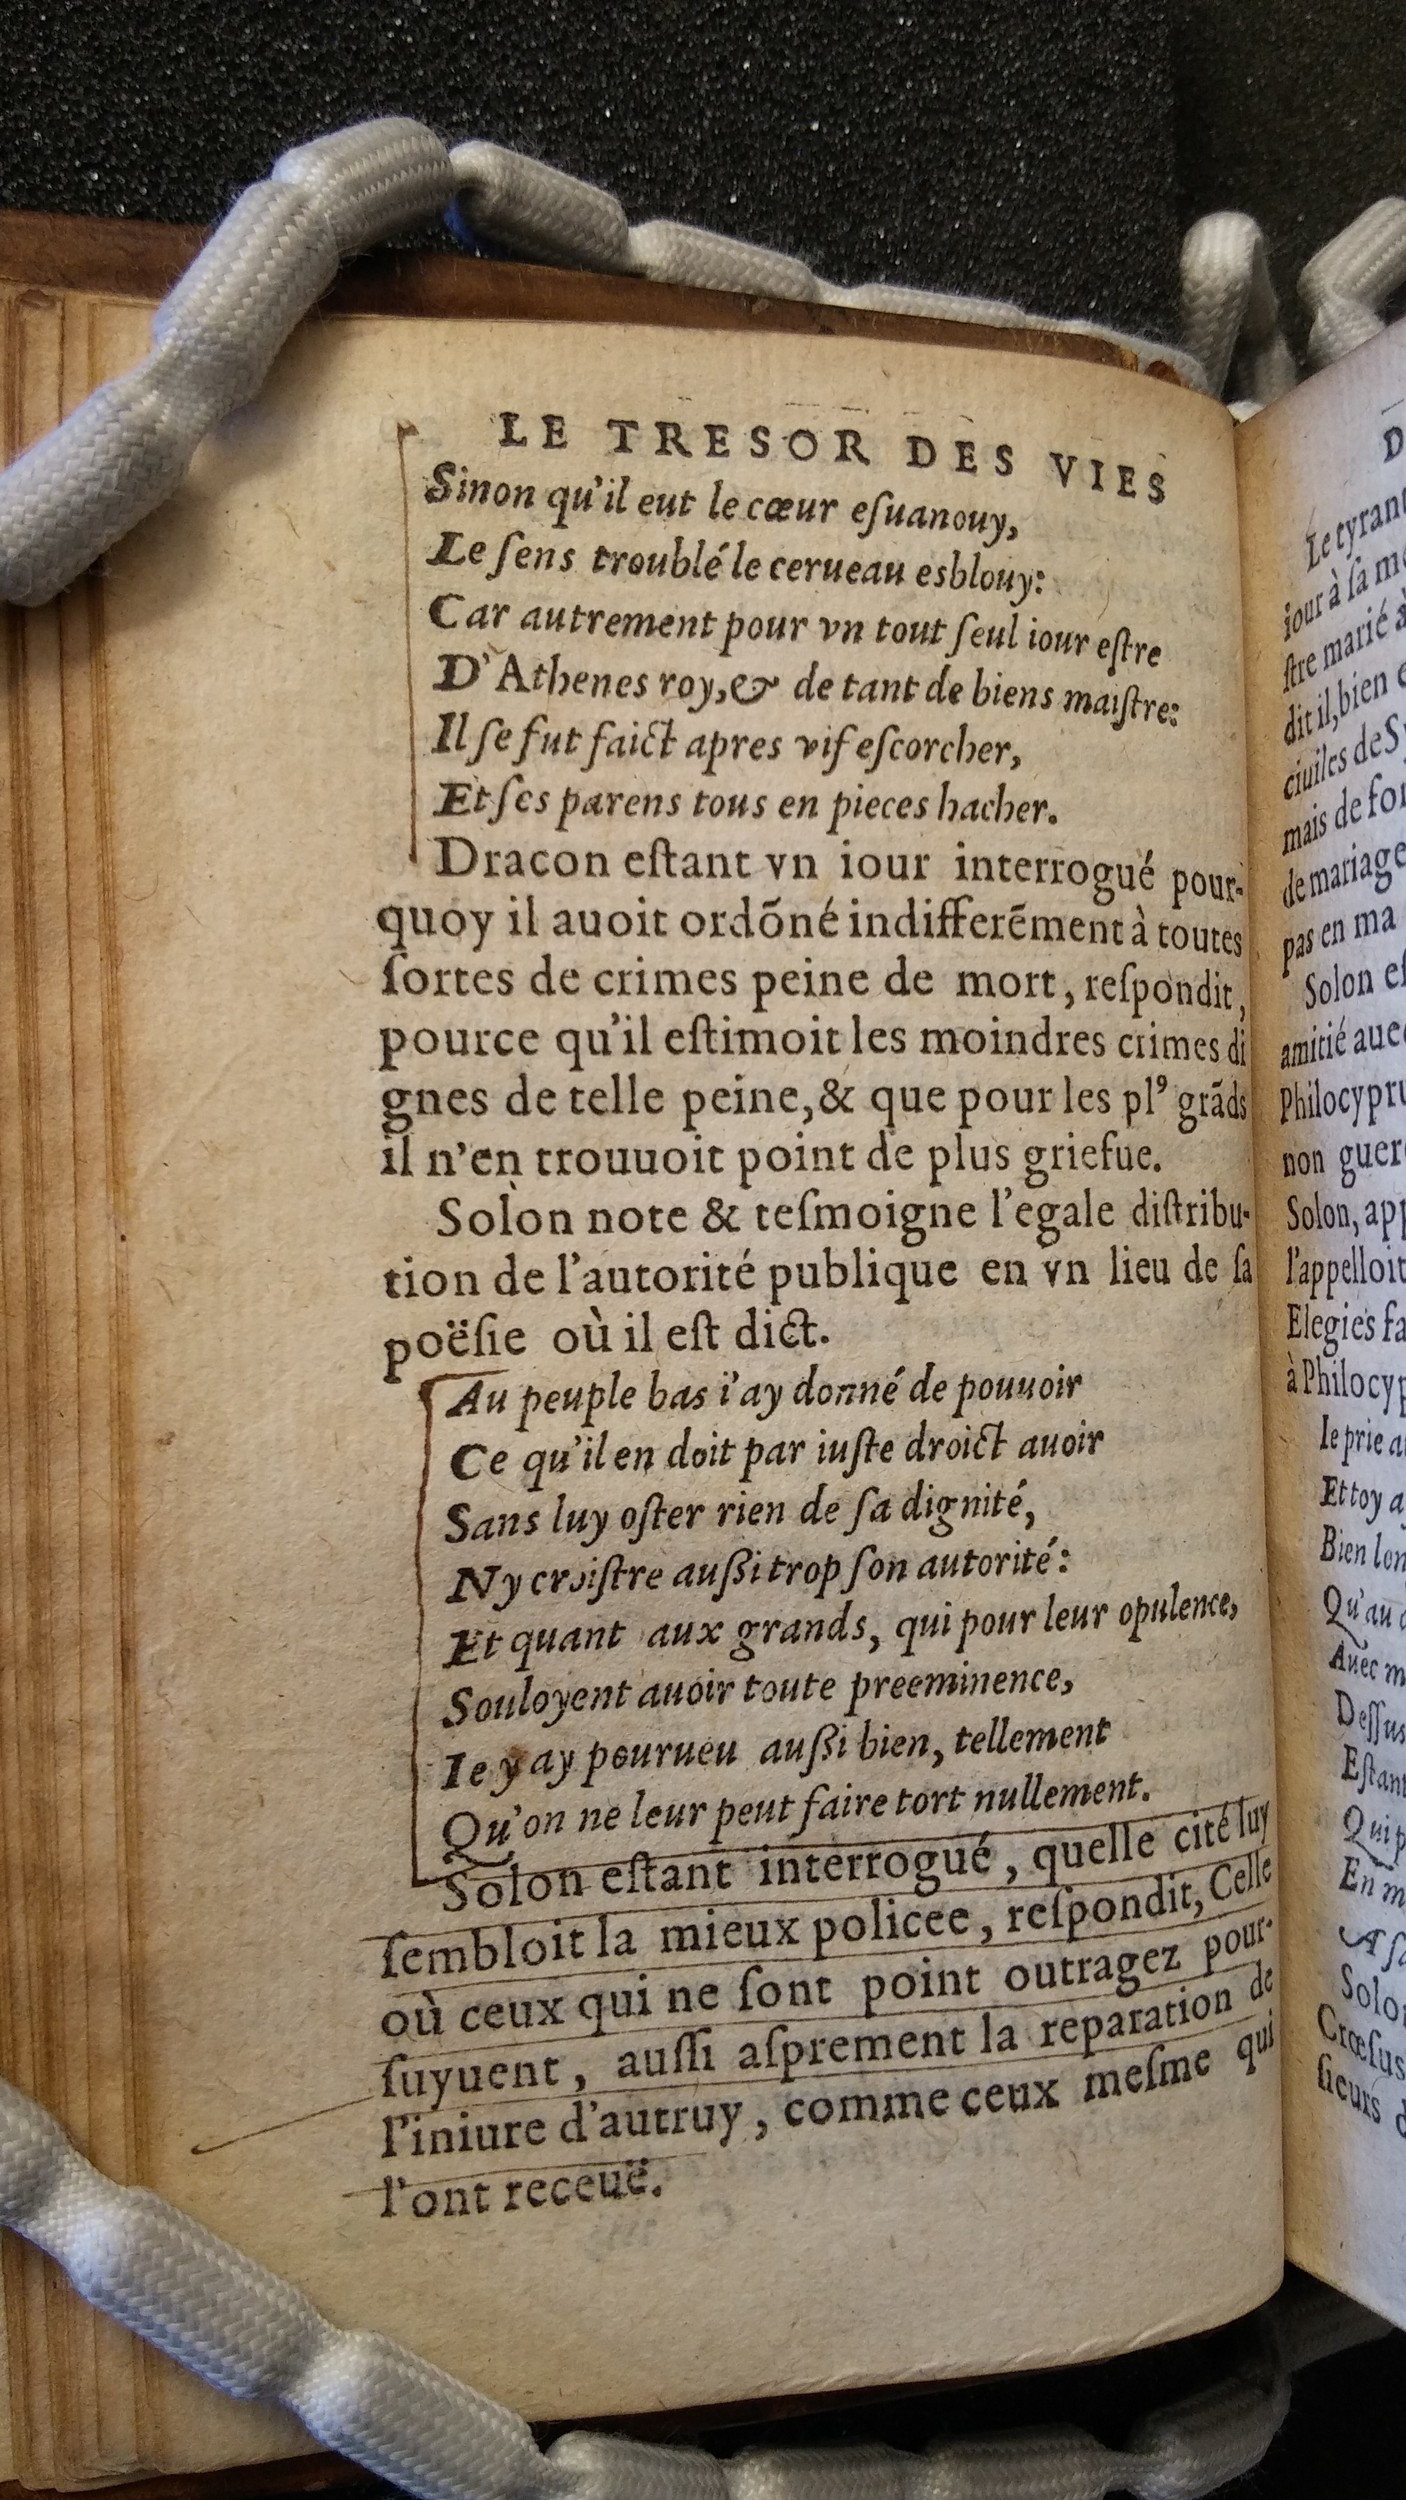 LE TRESOR DES VIES
Sinon qu'il eut le cœur eſuanouy,
Le ſens troublé le cerueau esblouy:
Car autrement pour vn tout ſeul iour eſtre
D'Athenes roy,& de tant de biens maiſtre:
Il ſe fut faict apres vif eſcorcher,
Et ſes parens tous en pieces hacher.
Dracon eſtant vn iour interrogué pour-
quoy il auoit ordõné indifferẽment à toutes
ſortes de crimes peine de mort, reſpondit,
pource qu'il eſtimoit les moindres crimes di
gnes de telle peine,& que pour les plꝰ grãds
il n'en trouuoit point de plus griefue.
Solon note & teſmoigne l'egale diſtribu-
tion de l'autorité publique en vn lieu de ſa
poëſie où il eſt dict.
Au peuple bas i'ay donné de pouuoir
Ce qu'il en doit par iuſte droict auoir
Sans luy oſter rien de ſa dignité,
Ny croiſtre auſſi trop ſon autorité:
Et quant aux grands, qui pour leur opulence,
Souloyent auoir toute preeminence,
Ie y ay pourueu auſſi bien, tellement
Qu'on ne leur peut faire tort nullement.
Solon eſtant interrogué, quelle cité luy
ſembloit la mieux policee, reſpondit, Celle
où ceux qui ne ſont point outragez pour-
ſuyuent, auſſi aſprement la reparation de
l'iniure d'autruy, comme ceux meſme qui
l'ont receuë.
Le tyrant
iour à ſa
ſtre marié à
dit il, bien
ciuiles de
mais de
de mariage
pas en ma
Solon
amitié
non
Solon,
l'appelloit
Elegies
à
Ie prie
Et toy
Bien
Qu'au
Auec
Deſſus
Qui
En
A
Crœſus